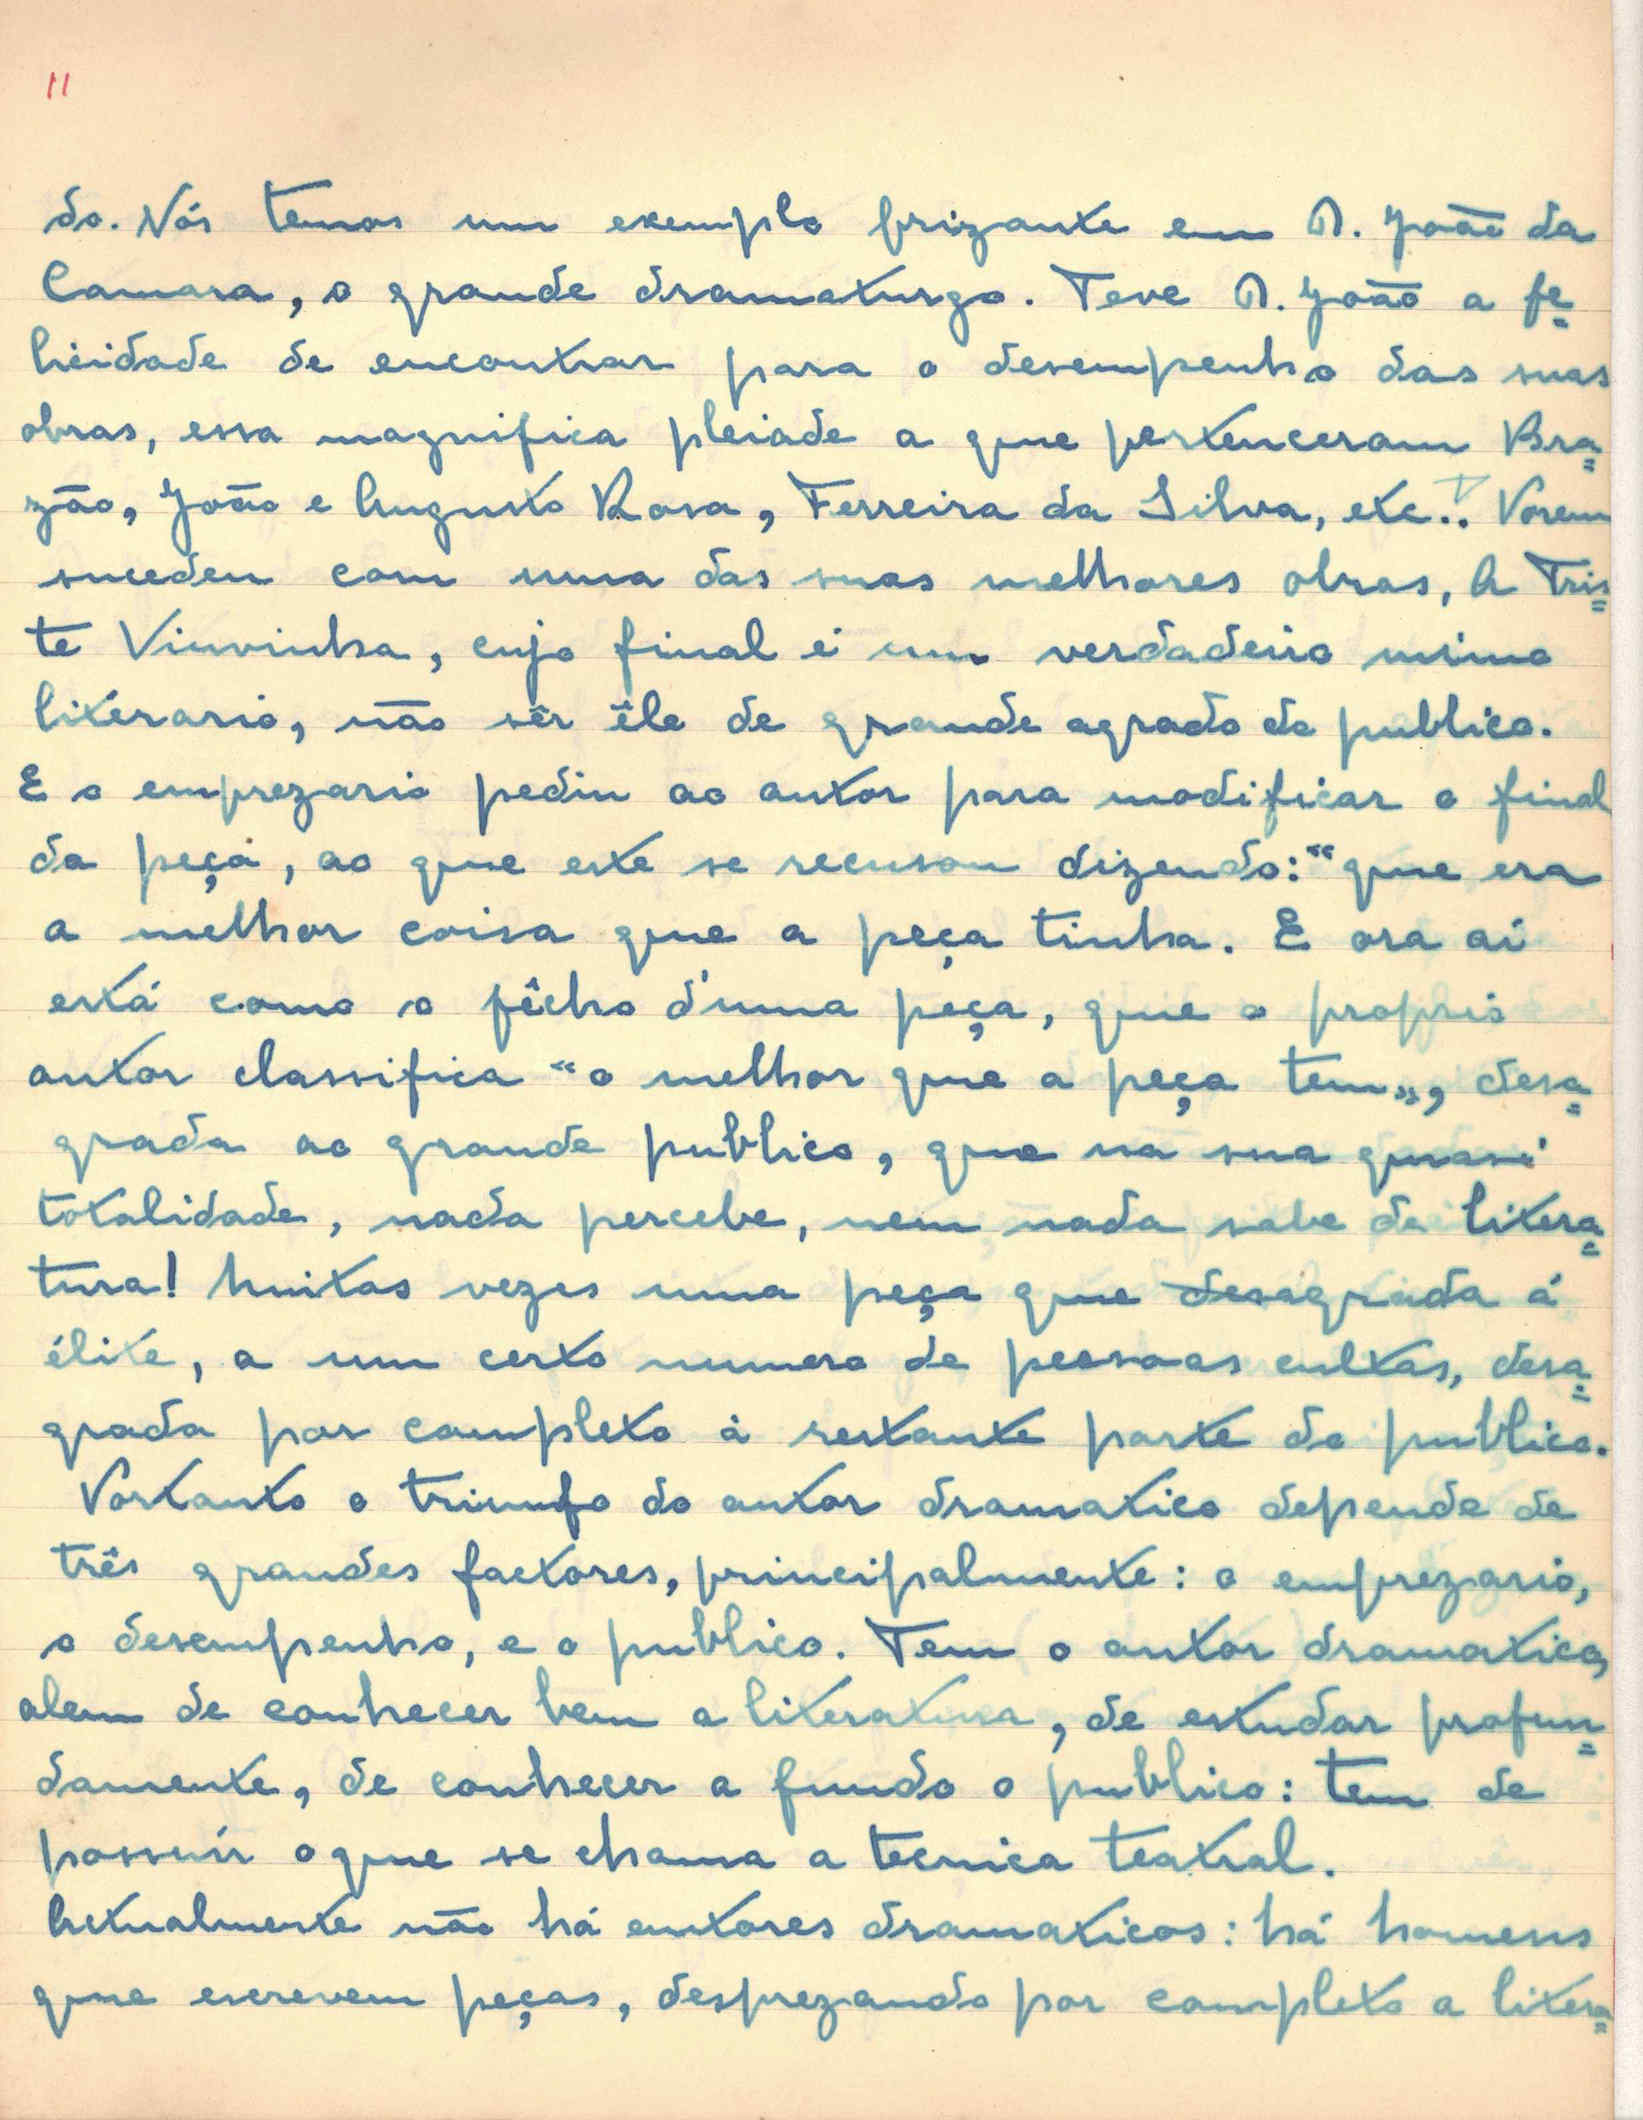 11
do. Nós temos um exemplo frizante em D. João da
Camara, o grande dramaturgo. Teve D. João a fe=
licidade de encontrar para o desempenho das suas
obras, essa magnifica pleiade a que pertenceram Bra=
zão, João e Augusto Rosa, Ferreira da Silva, etc.. Porem
sucedeu com uma das suas melhores obras, A Tris=
te Viuvinha, cujo final é um verdadeiro mimo
literario, não sêr êle de grande agrado do publico.
E o emprezario pediu ao autor para modificar o final
da peça, ao que este se recusou dizendo: “que era
a melhor coisa que a peça tinha. E ora aí
está como o fêcho d'uma peça, que o proprio
autor classifica “o melhor que a peça tem„, desa=
grada ao grande publico, que na sua quasi
totalidade, nada percebe, nem nada sabe de litera=
tura! Muitas vezes uma peça que desagrada á
élite, a um certo numero de pessoas cultas, desa=
grada por completo à restante parte do publico.
Portanto o triunfo do autor dramatico depende de
três grandes factores, principalmente: o emprezario,
o desempenho, e o publico. Tem o autor dramatico,
alem de conhecer bem a literatura, de estudar profun=
damente, de conhecer a fundo o publico: tem de
possuír o que se chama a tecnica teatral.
Actualmente não há autores dramaticos: há homens
que escrevem peças, desprezando por completo a litera=